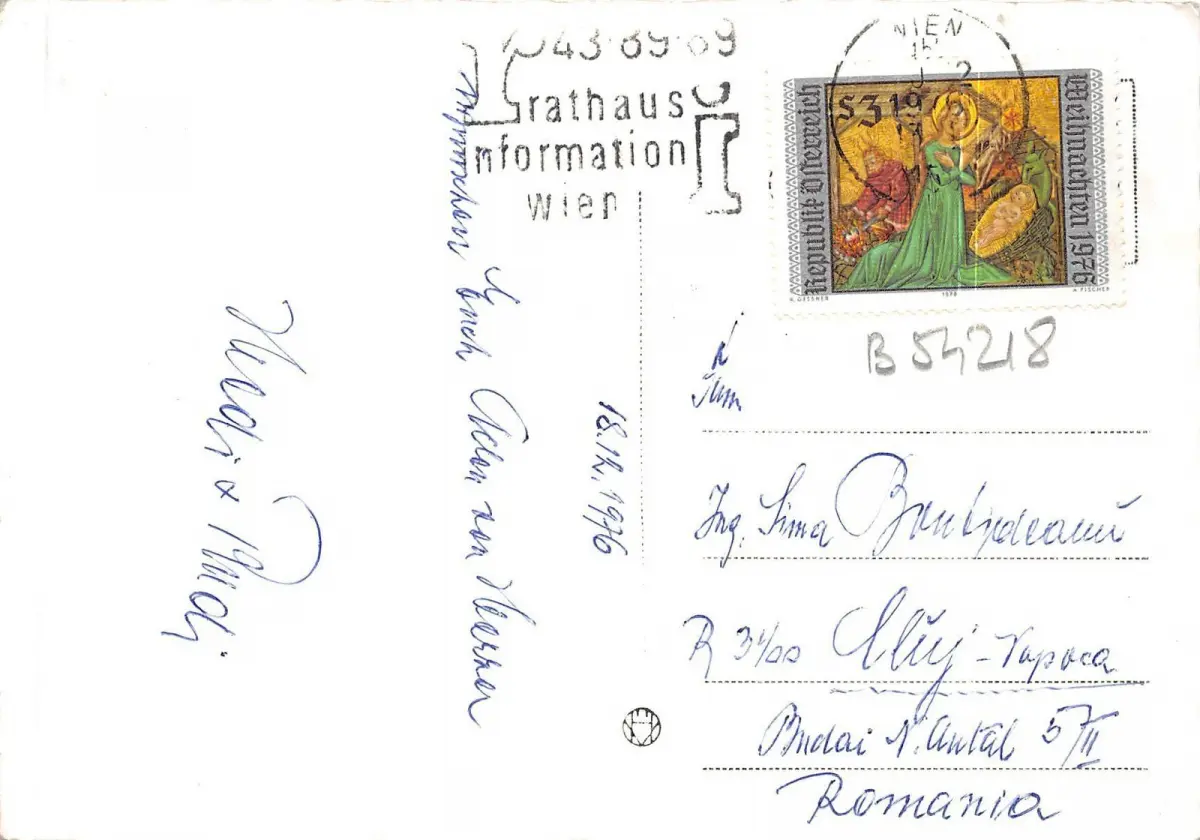 43·89·89
rathaus
information
wien
WIEN
S3
Republik Österreich
Weihnachten 1976
1976
A. FISCHER
B 54218
18.12.1976
wünschen Euch Allen von Herzen
Hedi + Rudi
Ing. Sima
R 3400 Cluj-Napoca
Budai N. Antal 57/II
Romania